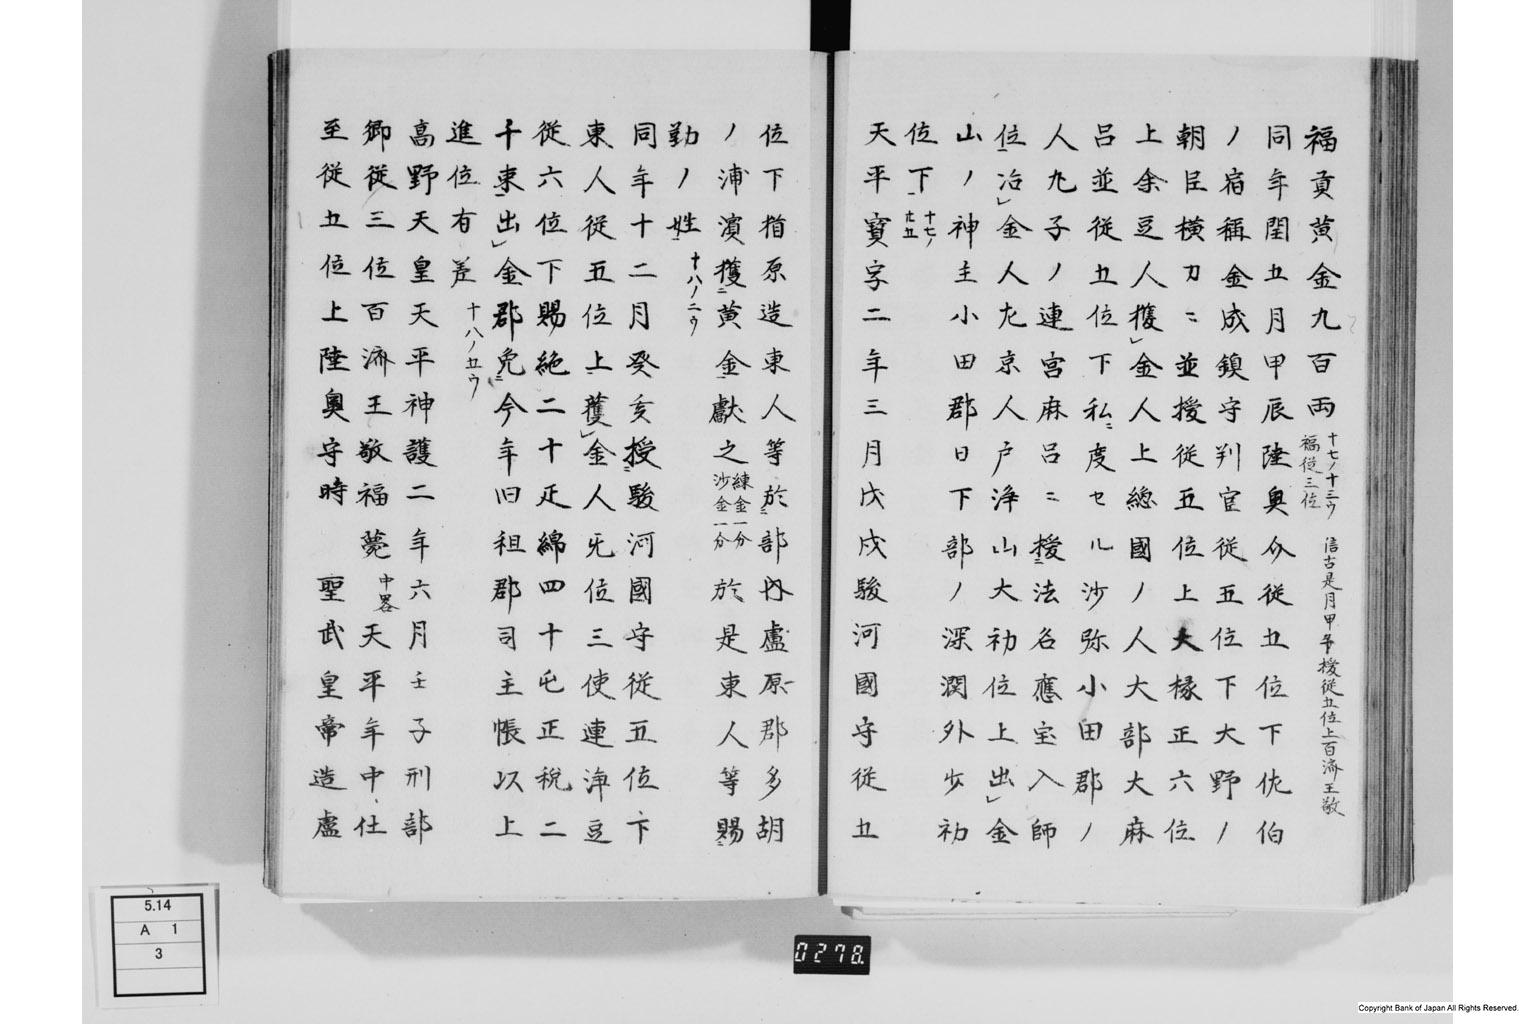 福貢黄金九百両
十七ノ十三ウ
福従三位
信古是月甲午授従五位上百済王敬
同年閏五月甲辰陸奥介従五位下佐伯
ノ宿稱金成鎮守判官従五位下大野ノ
朝臣横刀ニ並授従五位上大掾正六位
上余豆人獲金人上總國ノ人大部大麻
呂並従五位下私ニ度セル沙弥小田郡ノ
人九子ノ連宮麻呂ニ授法名應宝入師
位冶金人左京人戸浄山大初位上出金
山ノ神主小田郡日下部ノ深淵外少初
位下
十七ノ
廿五
天平寳字二年三月戊戌駿河國守従五
位下揩原造東人等於部内盧原郡多胡
ノ浦濱獲黄金獻之
練金一分
沙金一分
於是東人等賜
勤ノ姓
十八ノ二ウ
同年十二月癸亥授駿河國守従五位下
東人従五位上獲金人无位三使連浄豆
従六位下賜絁二十疋綿四十屯正税二
千束出金郡免今年旧租郡司主帳以上
進位有差
十八ノ五ウ
高野天皇天平神護二年六月壬子刑部
卿従三位百済王敬福薨
中畧
天平年中仕
至従五位上陸奥守時 聖武皇帝造盧
5.14
A 1
3
0278.
Copyright Bank of Japan All Rights Reserved.